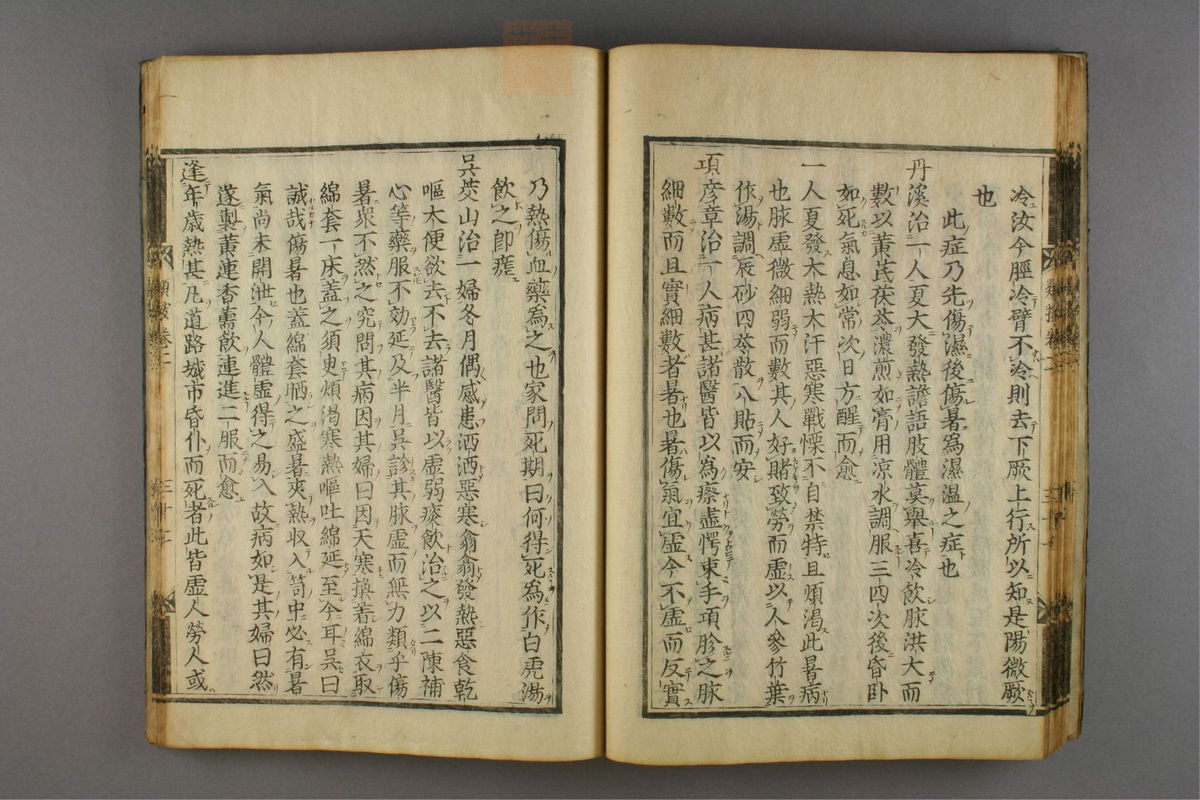 冷汝今脛冷臂不冷則去下厥上行所以知是陽微厥
也
此症乃先傷濕後傷暑為濕溫之症也
丹溪治一人夏大發熱譫語肢體莫舉喜冷飲脉洪大而
數以黃茋茯苓濃煎如膏用涼水調服三四次後昏卧
如死氣息如常次日方醒而愈
一人夏發大熱大汗惡寒戰慄不自禁特且煩渴此暑病
也脉虛微細弱而數其人好賭致勞而虛以人參竹葉
作湯調辰砂四苓散八貼而安
項彦章治一人病甚諸醫皆以為瘵盡愕束手項胗之脉
細數而且實細數者暑也暑傷氣宜虛今不虛而反實
乃熱傷血藥為之也家問死期曰何得死為作白虎湯
飲之即瘥
吳茭山治一婦冬月偶感患洒洒惡寒翕翕發熱惡食乾
嘔大便欲去不去諸醫皆以虛弱痰飲治之以二陳補
心等藥服不効延及半月吳診其脉虛而無力類乎傷
暑衆不然之究問其病因其婦曰因天寒換著綿衣取
綿套一床蓋之須臾煩渴寒熱嘔吐綿延至今耳吳曰
誠哉傷暑也蓋綿套晒之盛暑夾熱收入笥中必有暑
氣尚未開泄今人體虛得之易入故病如是其婦曰然
遂製黃連香薷飲連進二服而愈
逢年歲熱甚凡道路城市昏仆而死者此皆虛人勞人或
類按 卷二
三十二